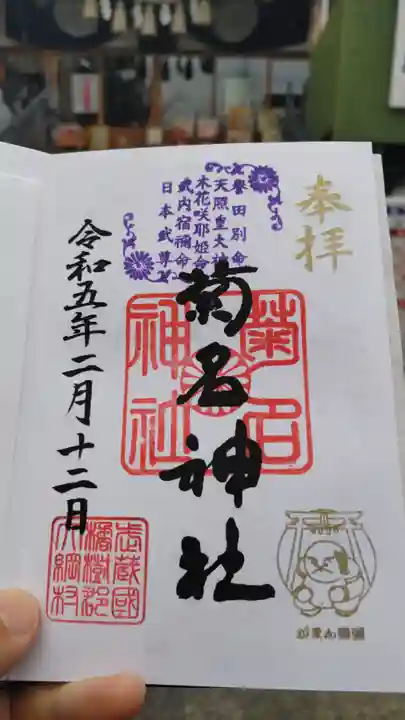 奉拝
誉田別命
天照皇大神
木花咲耶姫命
武内宿禰命
日本武尊
菊名神社
菊名
神社
令和五年二月十二日
武蔵國
橘樹郡
大綱村